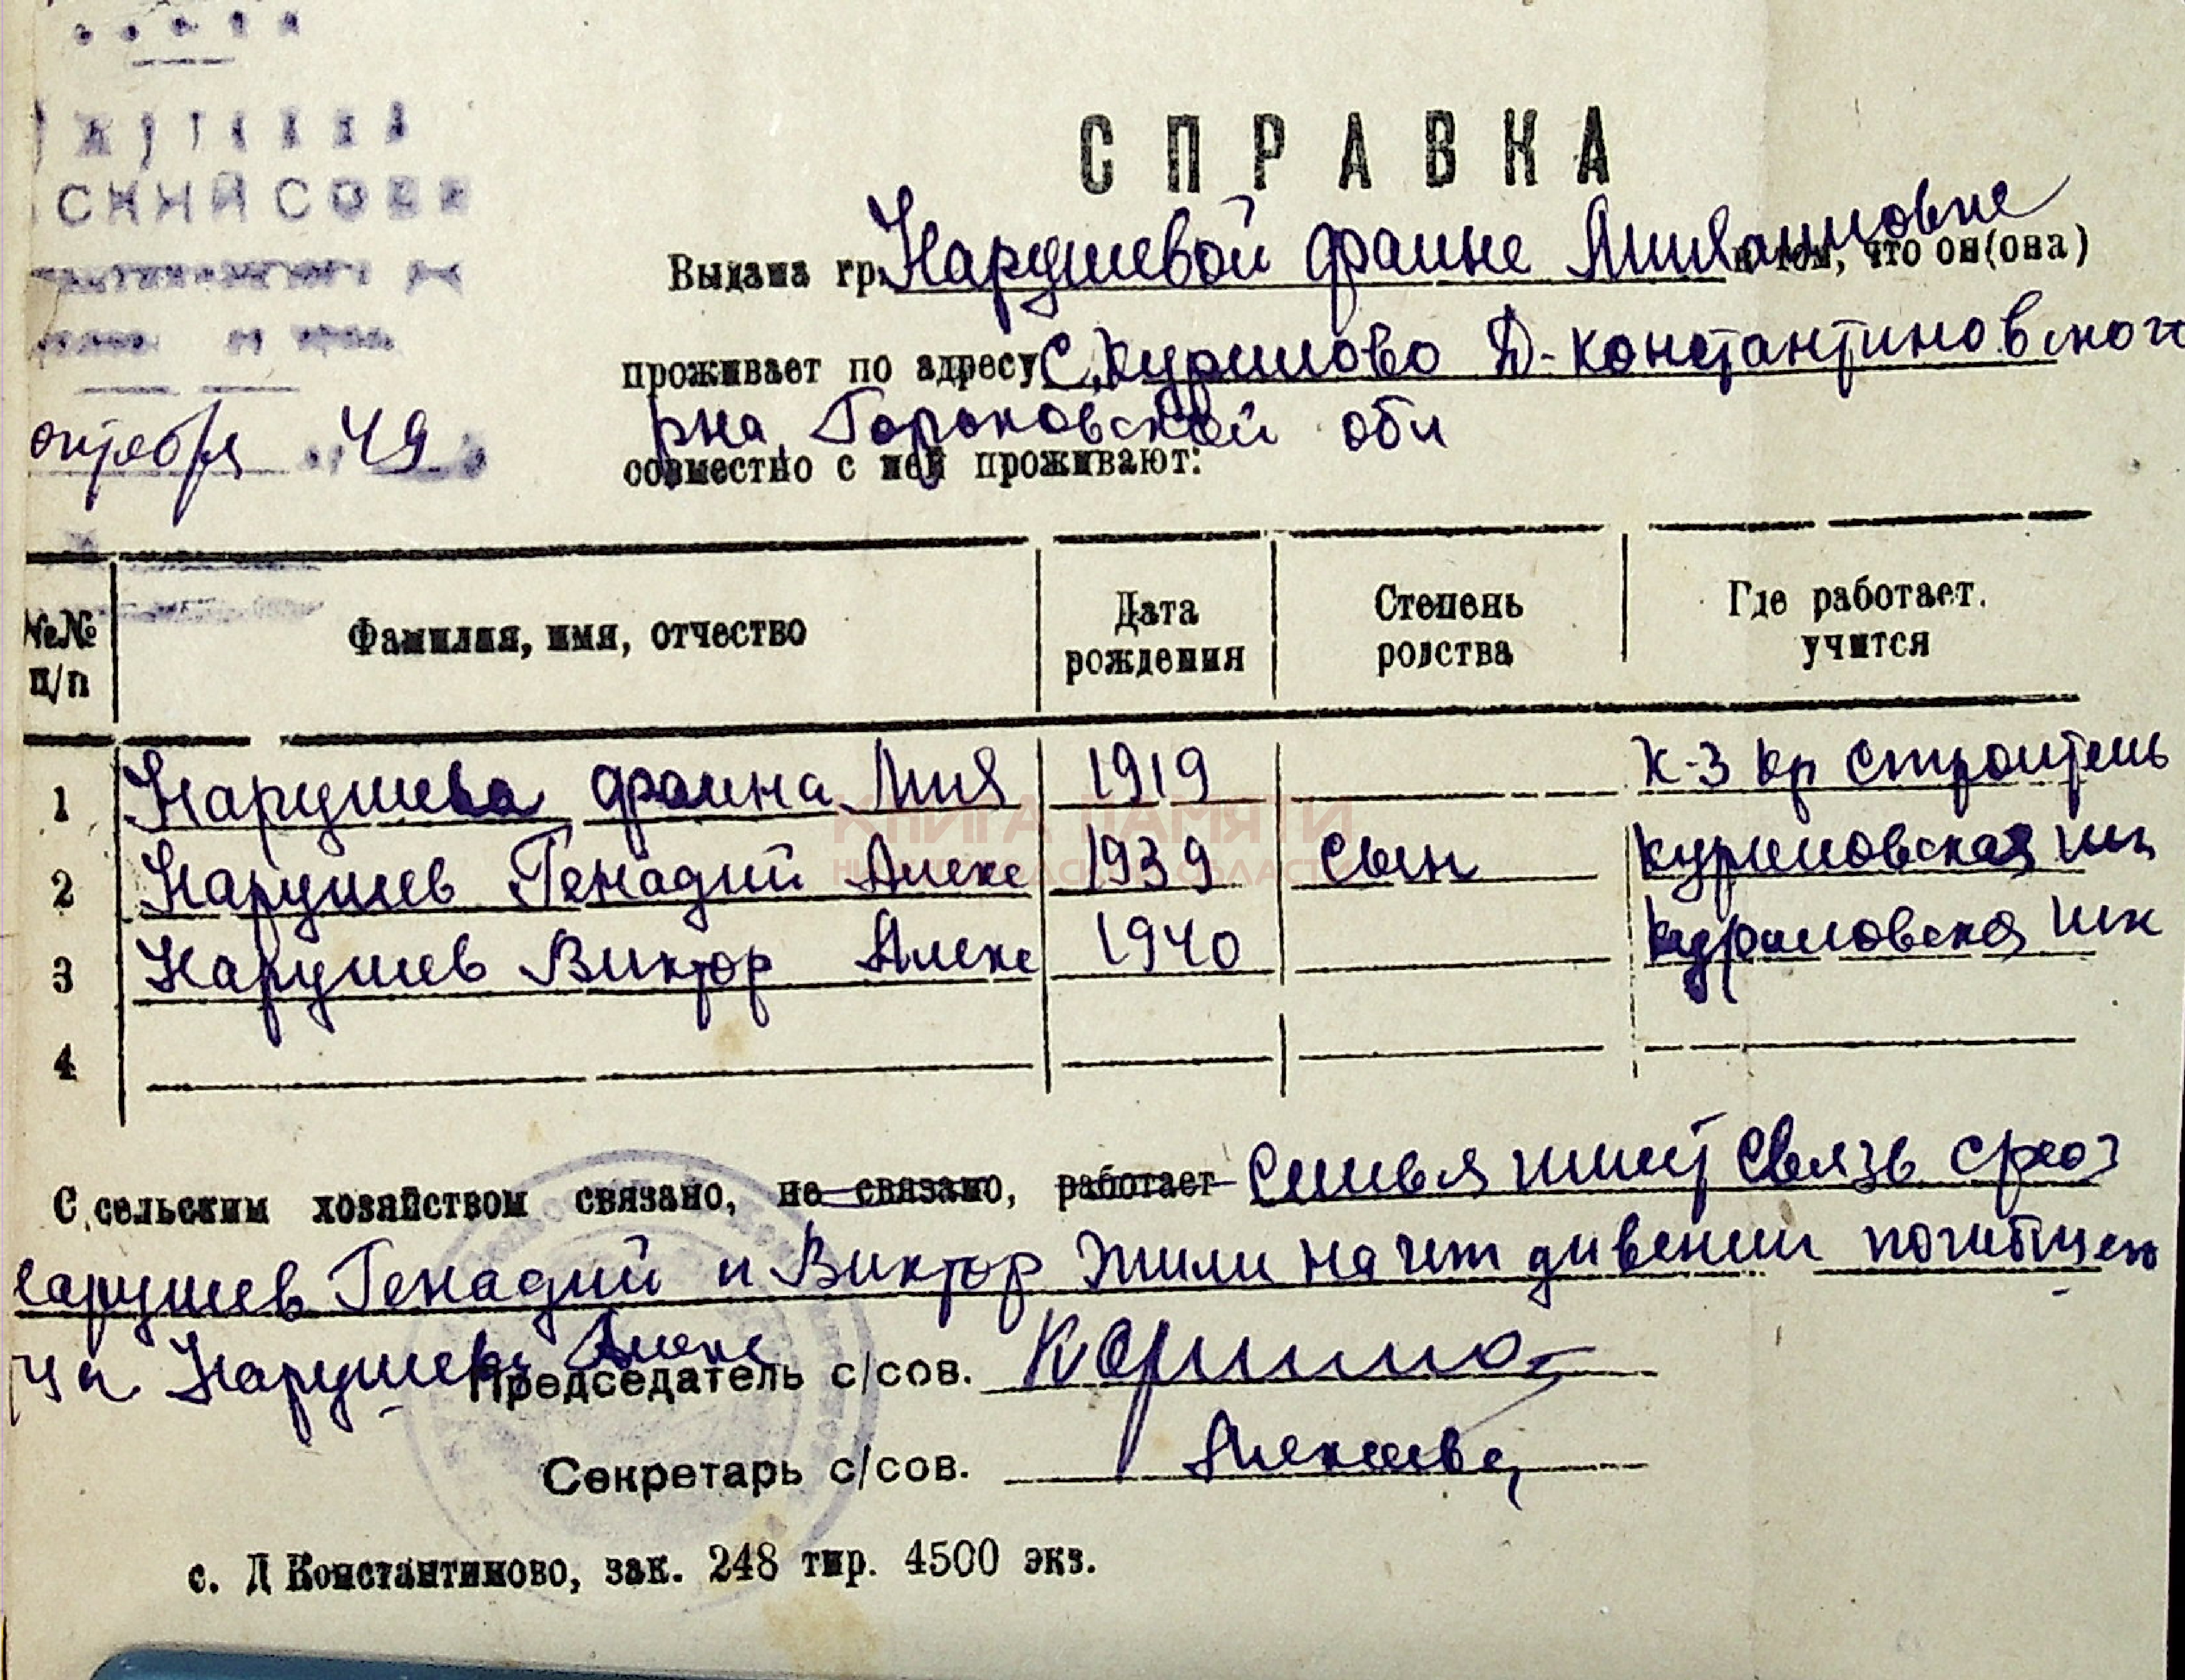 СПРАВКА
Выдана гр. Карушевой Фаине в том, что он(она)
проживает по адресу С. Курилово Д-Константиновского
рна, Горьковской обл
октября 49
совместно с ней проживают:
№№ п/п Фамилия, имя, отчество Дата рождения Степень родства Где работает. учится
1 Карушева Фаина 1919 К-З кр строитель
2 Карушев Генадий Алекс 1939 сын Куриловская шк
3 Карушев Виктор Алекс 1940 Куриловская шк
4
КНИГА ПАМЯТИ
НИЖЕГОРОДСКОЙ ОБЛАСТИ
С сельским хозяйством связано, не связано, работает Семья имеет связь
Карушев Генадий и Виктор жили на иждивении
Карушев Алекс
Председатель с/сов.
Секретарь с/сов. Алексеева
с. Д Константиново, зак. 248 тир. 4500 экз.